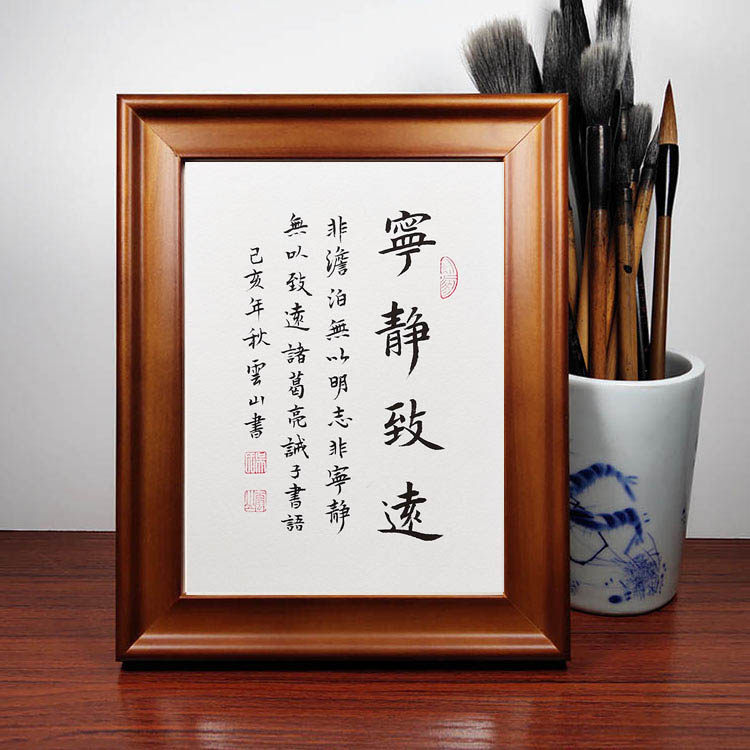 寧靜致遠
非澹泊無以明志非寧靜
無以致遠諸葛亮誡子書語
己亥年秋雲山書